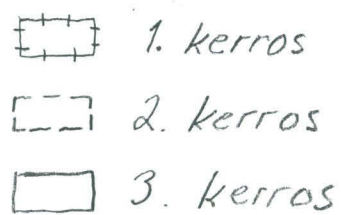 1. kerros
2. kerros
3. kerros